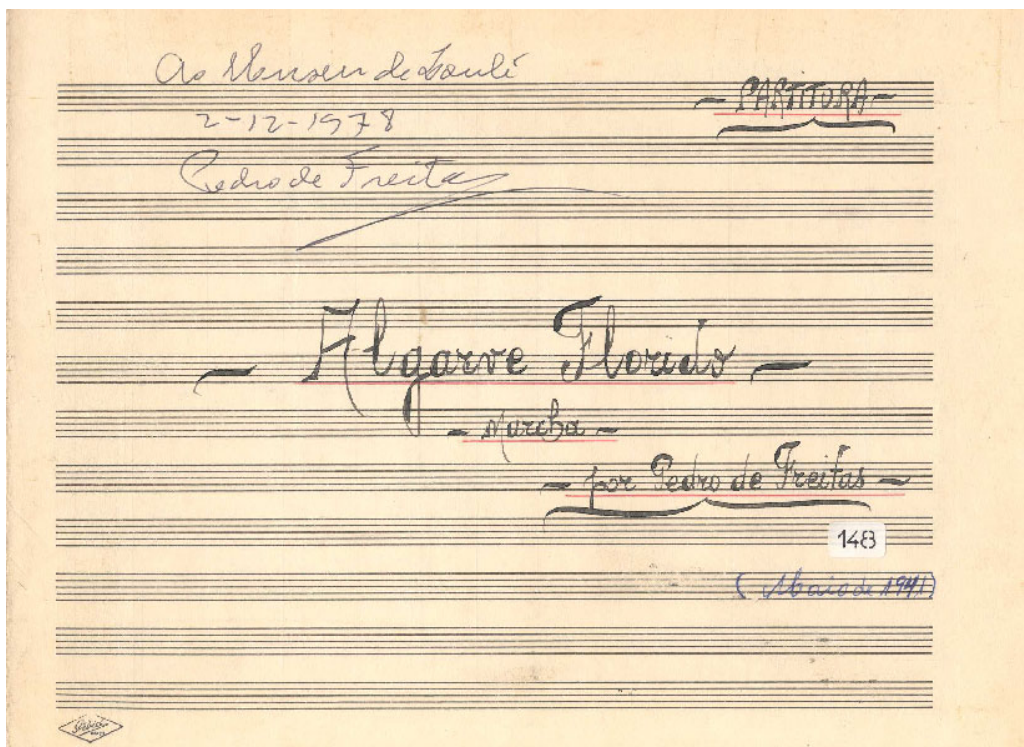 Ao Museu de Loulé
2-12-1978
Pedro de Freitas
- PARTITURA -
- Algarve Florido -
- Marcha -
- por Pedro de Freitas -
148
(Maio de 1941)